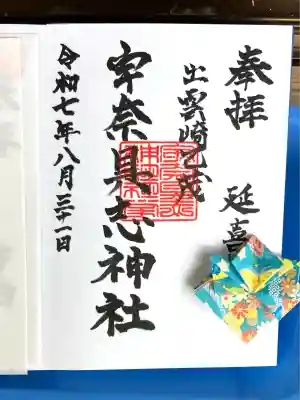 奉拝
延喜
出雲崎乙茂
宇奈具志神社
令和七年八月三十一日